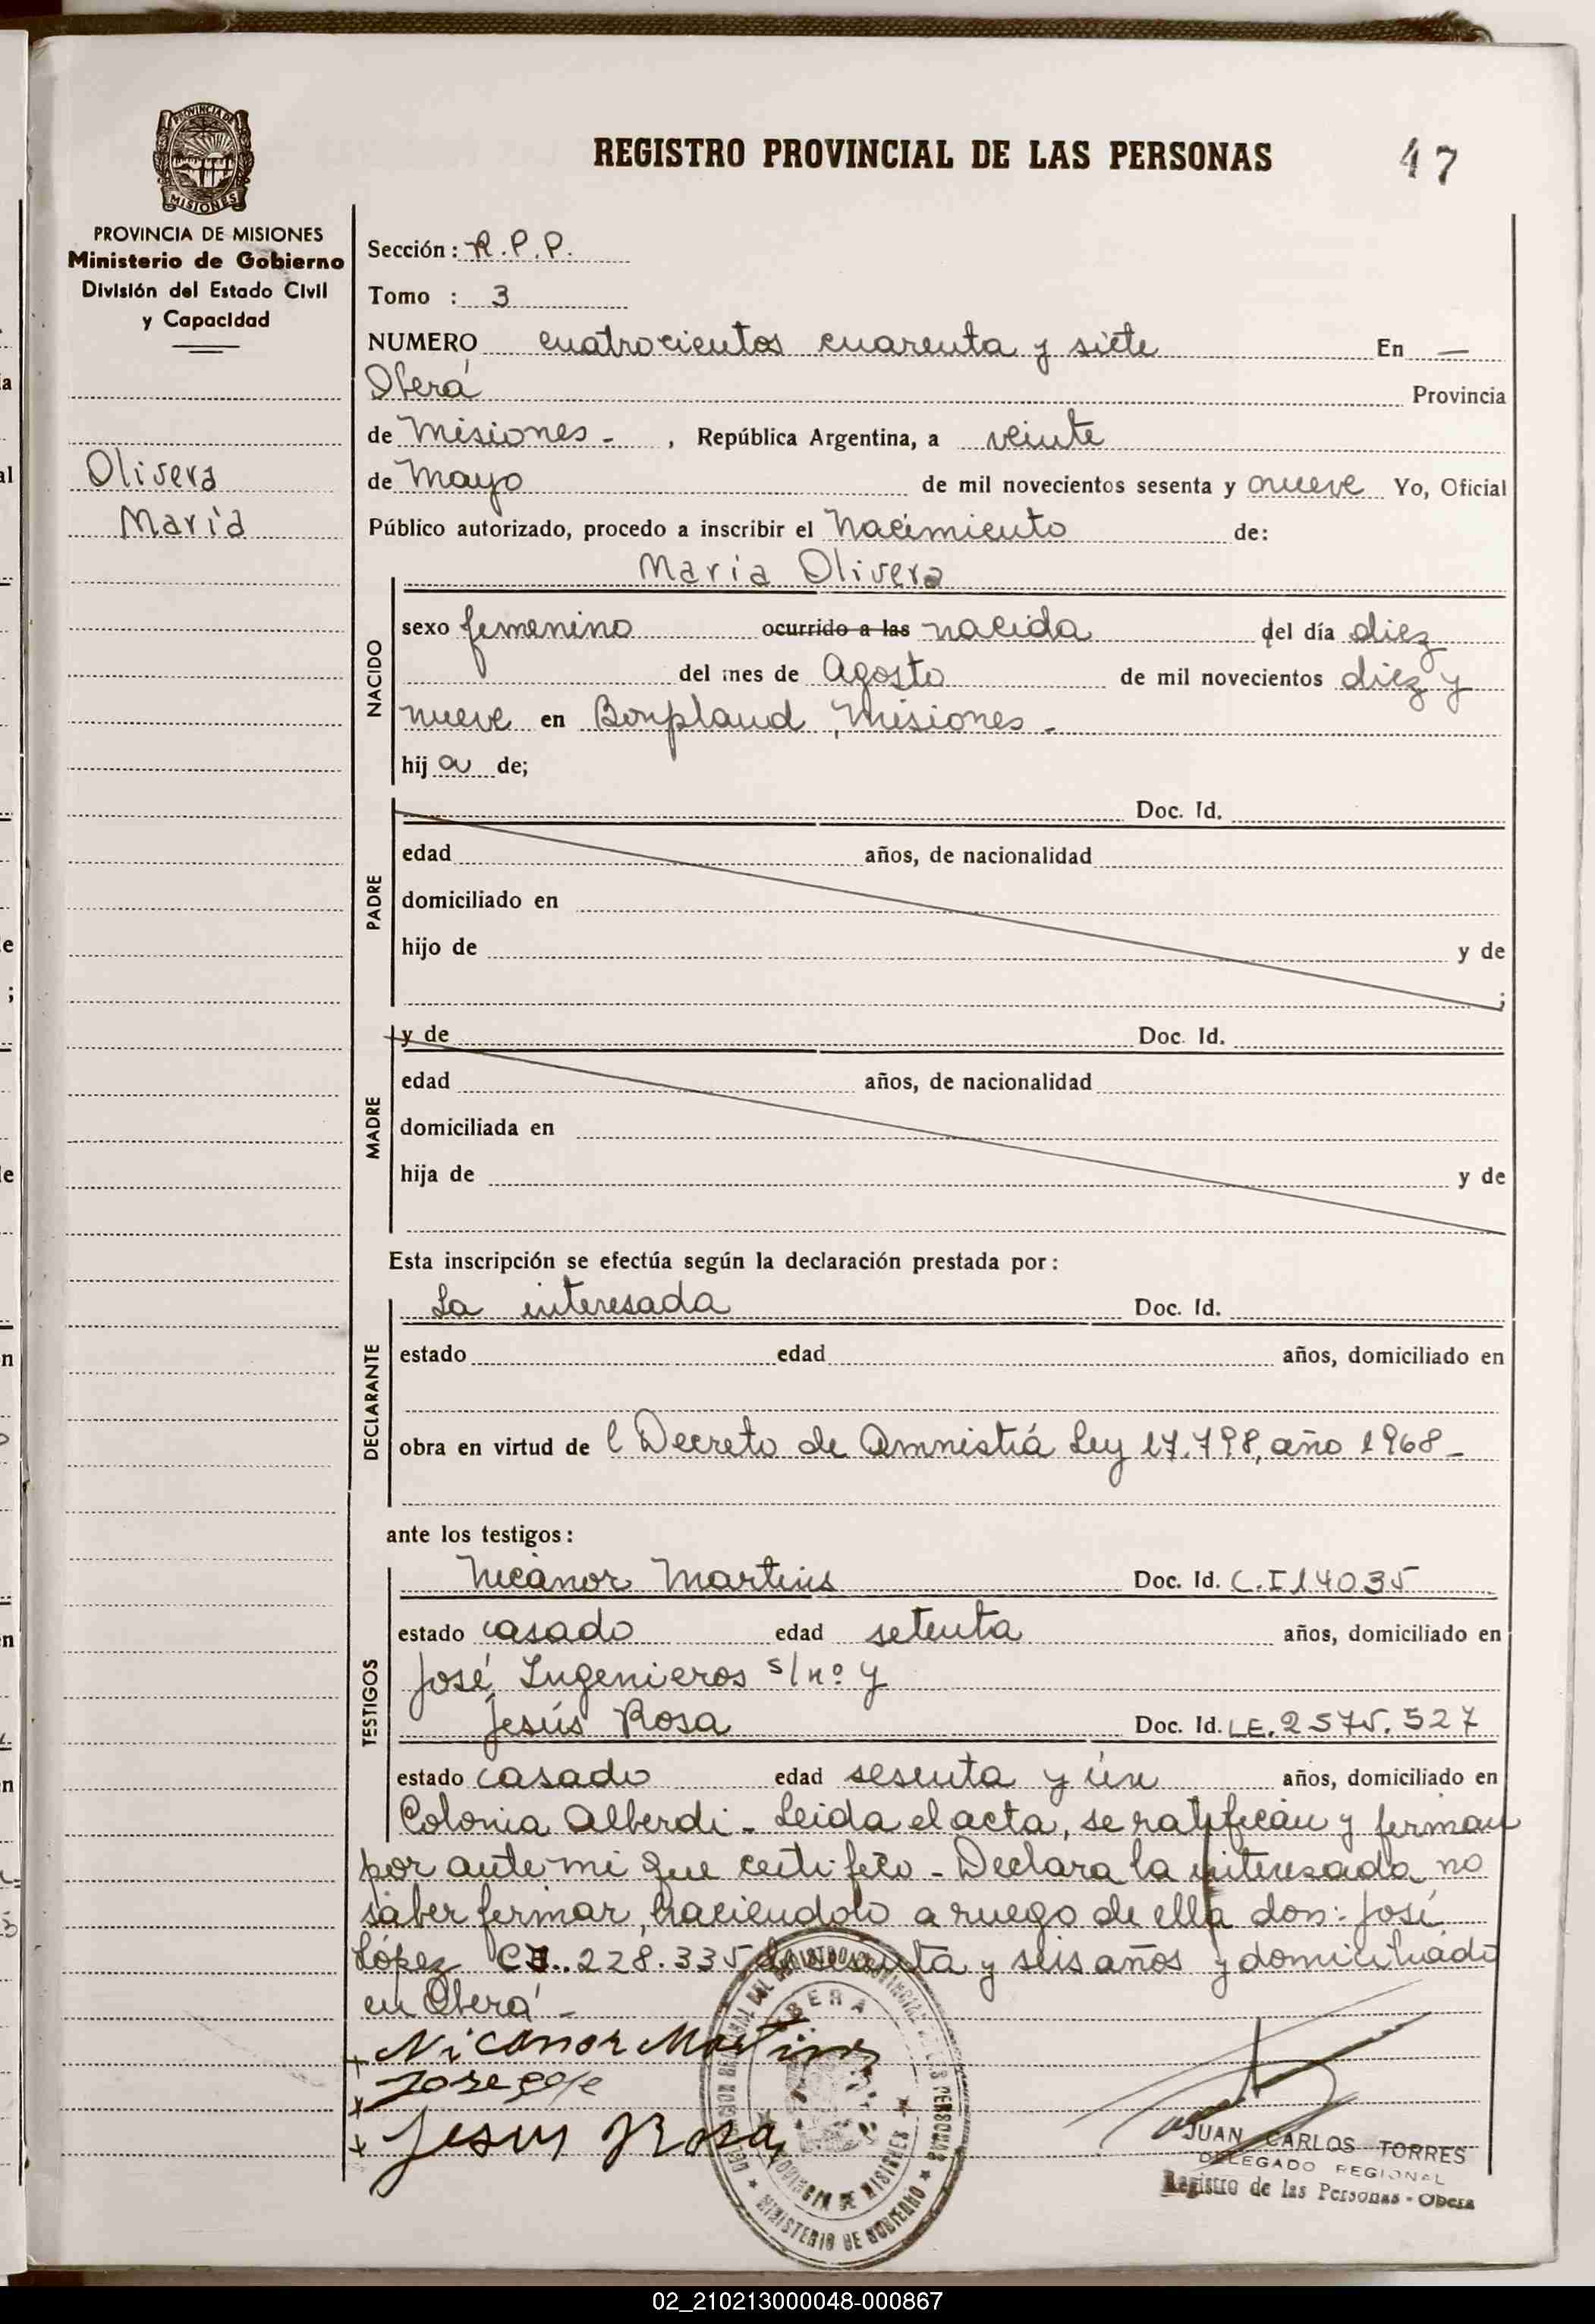 PROVINCIA DE MISIONES
REGISTRO PROVINCIAL DE LAS PERSONAS 47
PROVINCIA DE MISIONES
Ministerio de Gobierno
División del Estado Civil
y Capacidad
Olivera
María
Sección: R.P.P.
Tomo : 3
NUMERO cuatrocientos cuarenta y siete En —
Oberá Provincia
de Misiones - , República Argentina, a veinte
de Mayo de mil novecientos sesenta y nueve Yo, Oficial
Público autorizado, procedo a inscribir el Nacimiento de:
María Olivera
NACIDO
sexo femenino ocurrido a las nacida del día diez
del mes de Agosto de mil novecientos diez y
nueve en Bonpland, Misiones -
hij a de;
PADRE
Doc. Id.
edad años, de nacionalidad
domiciliado en
hijo de y de
;
MADRE
y de Doc. Id.
edad años, de nacionalidad
domiciliada en
hija de y de
Esta inscripción se efectúa según la declaración prestada por:
DECLARANTE
La interesada Doc. Id.
estado edad años, domiciliado en
obra en virtud de l Decreto de Amnistiá Ley 17.798, año 1968 -
ante los testigos:
TESTIGOS
Nicanor Martins Doc. Id. C.I 14035
estado casado edad setenta años, domiciliado en
José Ingenieros s/nº y
Jesús Rosa Doc. Id. LE. 2575.527
estado casado edad sesenta y ún años, domiciliado en
Colonia Alberdi - Leida el acta, se ratifican y firman
por ante mi que certifico - Declara la interesada no
saber firmar, haciendolo a ruego de ella don: José
López C.I. 228.335 de y seis años y domiciliado
en Oberá -
Nicanor Martins
Jose
Jesus Rosa
OBERA
PROVINCIA DE MISIONES
MINISTERIO DE GOBIERNO
JUAN CARLOS TORRES
DELEGADO REGIONAL
Registro de las Personas - Obera
02_210213000048-000867